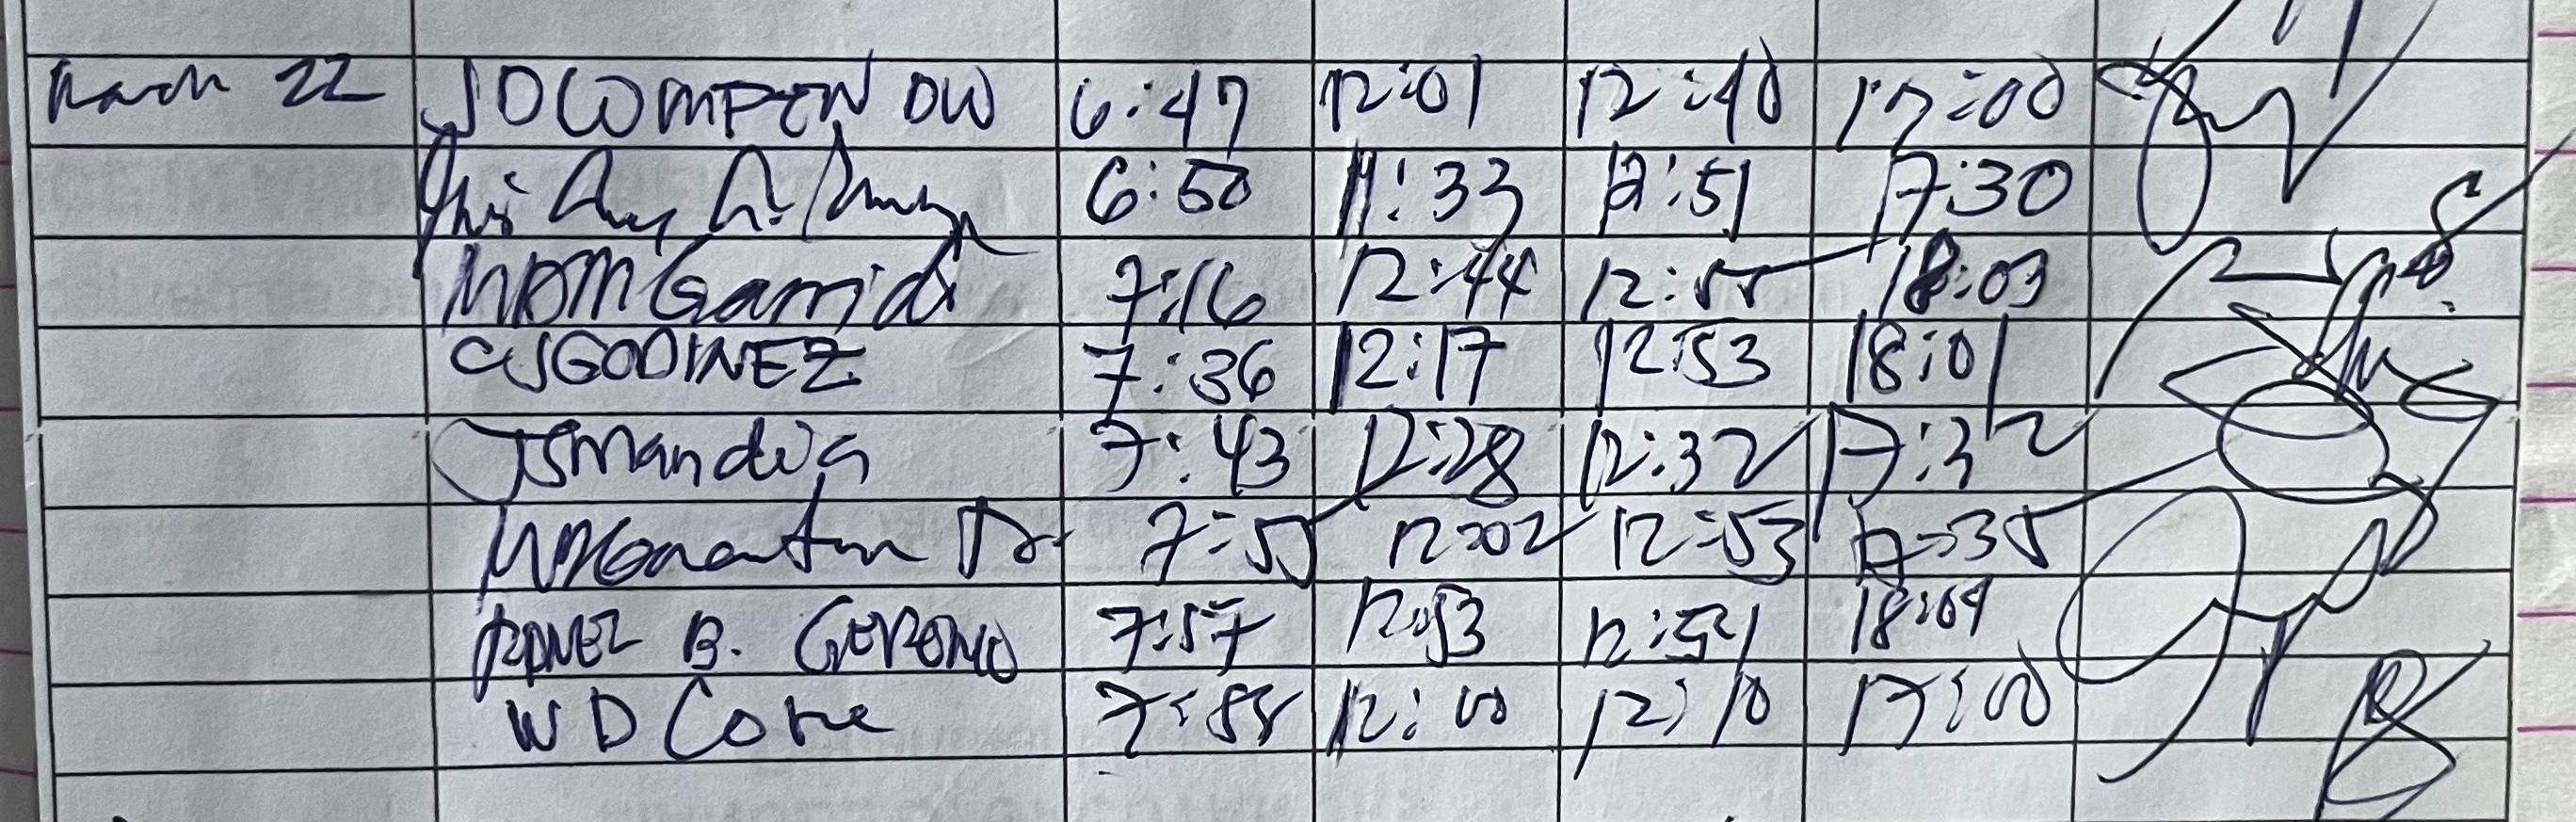 March 22 JDCOMPENDIO 6:47 12:01 12:40 17:00
6:50 11:33 12:51 17:30
MDMGarrido 7:16 12:44 12:55 18:03
CJSGODINEZ 7:36 12:17 12:53 18:01
JSMandia 7:43 12:28 12:32 17:32
Jr 7:55 12:02 12:53 17:35
B. GERONIMO 7:57 12:53 12:54 18:04
WD Cone 12:00 12:10 17:00